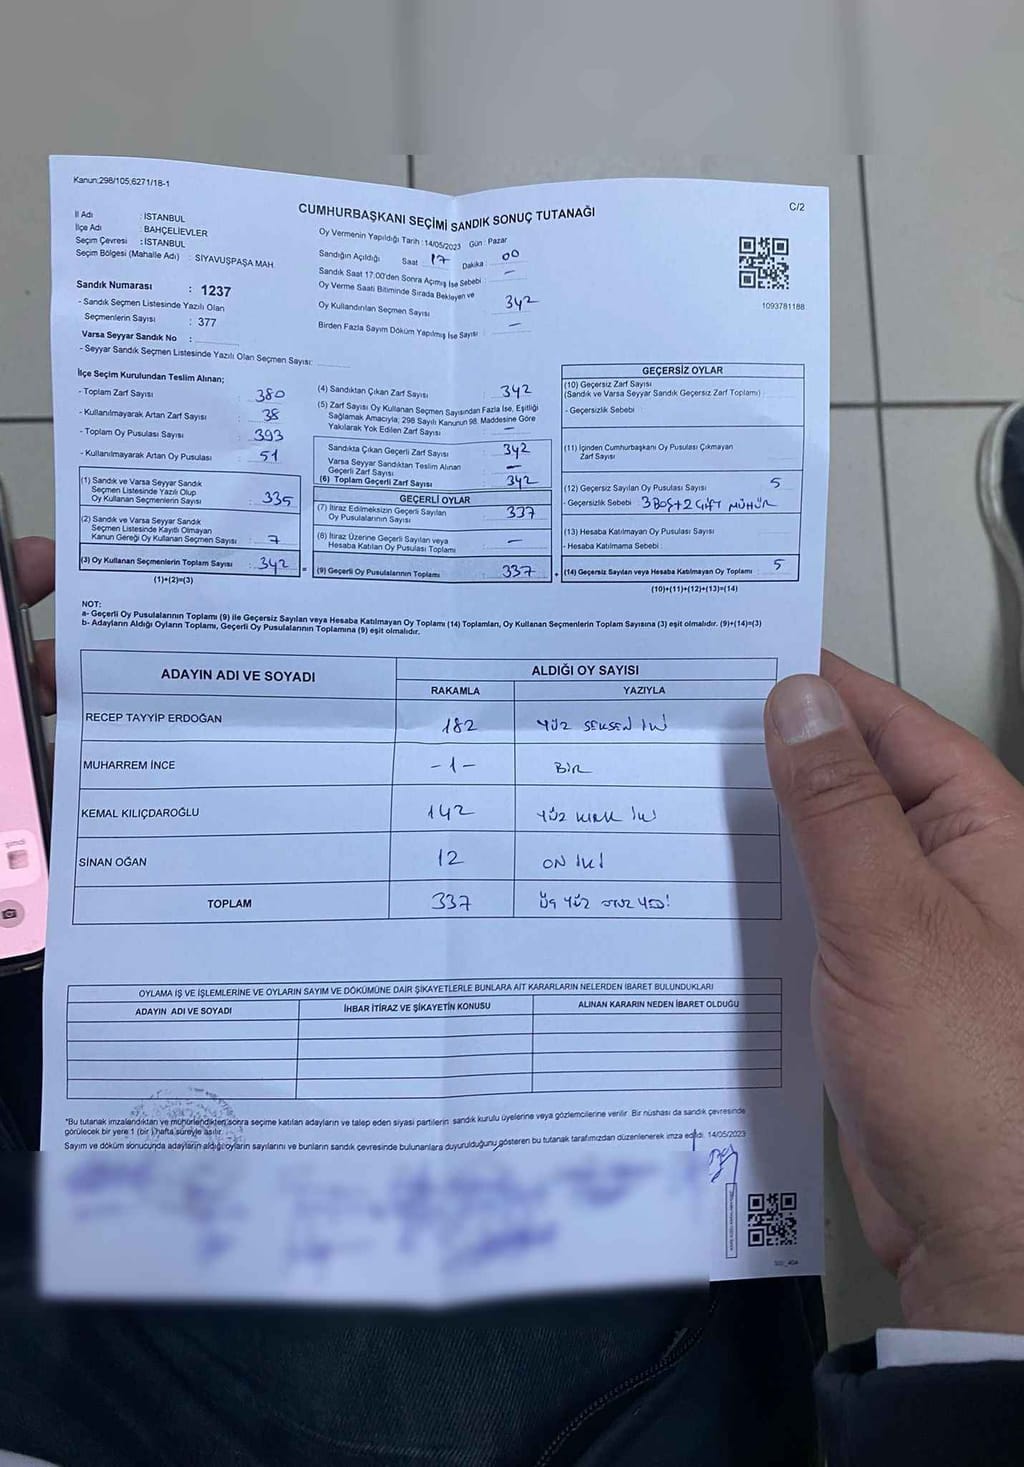 Kanun;298/105;6271/18-1
C/2
CUMHURBAŞKANI SEÇİMİ SANDIK SONUÇ TUTANAĞI
İl Adı : İSTANBUL
İlçe Adı : BAHÇELİEVLER
Seçim Çevresi : İSTANBUL
Seçim Bölgesi (Mahalle Adı) : SİYAVUŞPAŞA MAH.
Sandık Numarası : 1237
- Sandık Seçmen Listesinde Yazılı Olan
Seçmenlerin Sayısı : 377
Varsa Seyyar Sandık No :
- Seyyar Sandık Seçmen Listesinde Yazılı Olan Seçmen Sayısı:
Oy Vermenin Yapıldığı Tarih : 14/05/2023 Gün : Pazar
Sandığın Açıldığı Saat 17 Dakika : 00
Sandık Saat 17:00'den Sonra Açılmış İse Sebebi : —
Oy Verme Saati Bitiminde Sırada Bekleyen ve
Oy Kullandırılan Seçmen Sayısı : 342
Birden Fazla Sayım Döküm Yapılmış İse Sayısı : —
1093781188
İlçe Seçim Kurulundan Teslim Alınan;
- Toplam Zarf Sayısı : 380
- Kullanılmayarak Artan Zarf Sayısı : 38
- Toplam Oy Pusulası Sayısı : 393
- Kullanılmayarak Artan Oy Pusulası : 51
(1) Sandık ve Varsa Seyyar Sandık
Seçmen Listesinde Yazılı Olup
Oy Kullanan Seçmenlerin Sayısı : 335
(2) Sandık ve Varsa Seyyar Sandık
Seçmen Listesinde Kayıtlı Olmayan
Kanun Gereği Oy Kullanan Seçmen Sayısı : 7
(3) Oy Kullanan Seçmenlerin Toplam Sayısı : 342
(1)+(2)=(3)
(4) Sandıktan Çıkan Zarf Sayısı : 342
(5) Zarf Sayısı Oy Kullanan Seçmen Sayısından Fazla İse, Eşitliği
Sağlamak Amacıyla; 298 Sayılı Kanunun 98. Maddesine Göre
Yakılarak Yok Edilen Zarf Sayısı : —
Sandıkta Çıkan Geçerli Zarf Sayısı : 342
Varsa Seyyar Sandıktan Teslim Alınan
Geçerli Zarf Sayısı : —
(6) Toplam Geçerli Zarf Sayısı : 342
GEÇERLİ OYLAR
(7) İtiraz Edilmeksizin Geçerli Sayılan
Oy Pusulalarının Sayısı : 337
(8) İtiraz Üzerine Geçerli Sayılan veya
Hesaba Katılan Oy Pusulası Toplamı : —
= (9) Geçerli Oy Pusulalarının Toplamı : 337
GEÇERSİZ OYLAR
(10) Geçersiz Zarf Sayısı
(Sandık ve Varsa Seyyar Sandık Geçersiz Zarf Toplamı) :
- Geçersizlik Sebebi :
(11) İçinden Cumhurbaşkanı Oy Pusulası Çıkmayan
Zarf Sayısı :
(12) Geçersiz Sayılan Oy Pusulası Sayısı : 5
- Geçersizlik Sebebi : 3 BOŞ+2 ÇİFT MÜHÜR
(13) Hesaba Katılmayan Oy Pusulası Sayısı :
- Hesaba Katılmama Sebebi :
+ (14) Geçersiz Sayılan veya Hesaba Katılmayan Oy Toplamı : 5
(10)+(11)+(12)+(13)=(14)
NOT:
a- Geçerli Oy Pusulalarının Toplamı (9) ile Geçersiz Sayılan veya Hesaba Katılmayan Oy Toplamı (14) Toplamları, Oy Kullanan Seçmenlerin Toplam Sayısına (3) eşit olmalıdır. (9)+(14)=(3)
b- Adayların Aldığı Oyların Toplamı, Geçerli Oy Pusulalarının Toplamına (9) eşit olmalıdır.
ADAYIN ADI VE SOYADI
ALDIĞI OY SAYISI
RAKAMLA YAZIYLA
RECEP TAYYİP ERDOĞAN 182 YÜZ SEKSEN İKİ
MUHARREM İNCE -1- BİR
KEMAL KILIÇDAROĞLU 142 YÜZ KIRK İKİ
SİNAN OĞAN 12 ON İKİ
TOPLAM 337 ÜÇ YÜZ OTUZ YEDİ
OYLAMA İŞ VE İŞLEMLERİNE VE OYLARIN SAYIM VE DÖKÜMÜNE DAİR ŞİKAYETLERLE BUNLARA AİT KARARLARIN NELERDEN İBARET BULUNDUKLARI
ADAYIN ADI VE SOYADI İHBAR İTİRAZ VE ŞİKAYETİN KONUSU ALINAN KARARIN NEDEN İBARET OLDUĞU
*Bu tutanak imzalandıktan ve mühürlendikten sonra seçime katılan adayların ve talep eden siyasi partilerin sandık kurulu üyelerine veya gözlemcilerine verilir. Bir nüshası da sandık çevresinde
görülecek bir yere 1 (bir) hafta süreyle asılır.
Sayım ve döküm sonucunda adayların aldığı oyların sayılarını ve bunların sandık çevresinde bulunanlara duyurulduğunu gösteren bu tutanak tarafımızdan düzenlenerek imza edildi. 14/05/2023